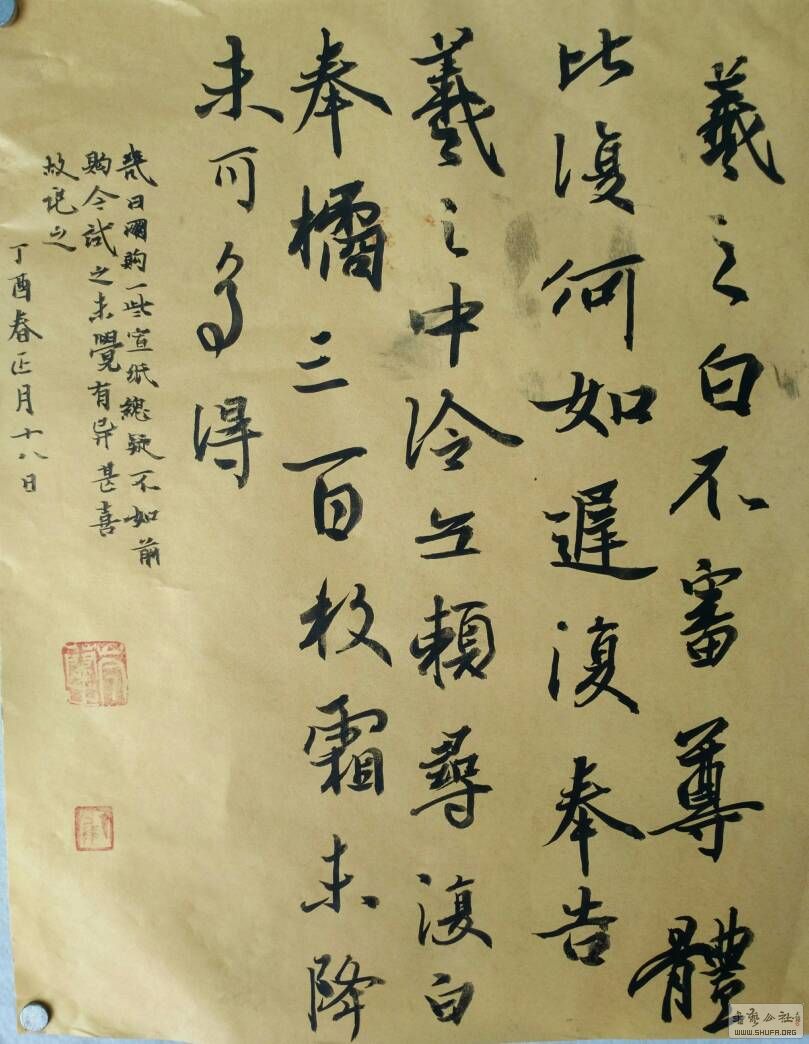 羲之白不審尊體
比復何如遲復奉告
羲之中冷無賴尋復白
奉橘三百枚霜未降
未可多得
日網購一些宣紙總疑不如前
購令試之未覺有異甚喜
故記之
丁酉春正月十八日
书艺公社
WWW.SHUFA.ORG